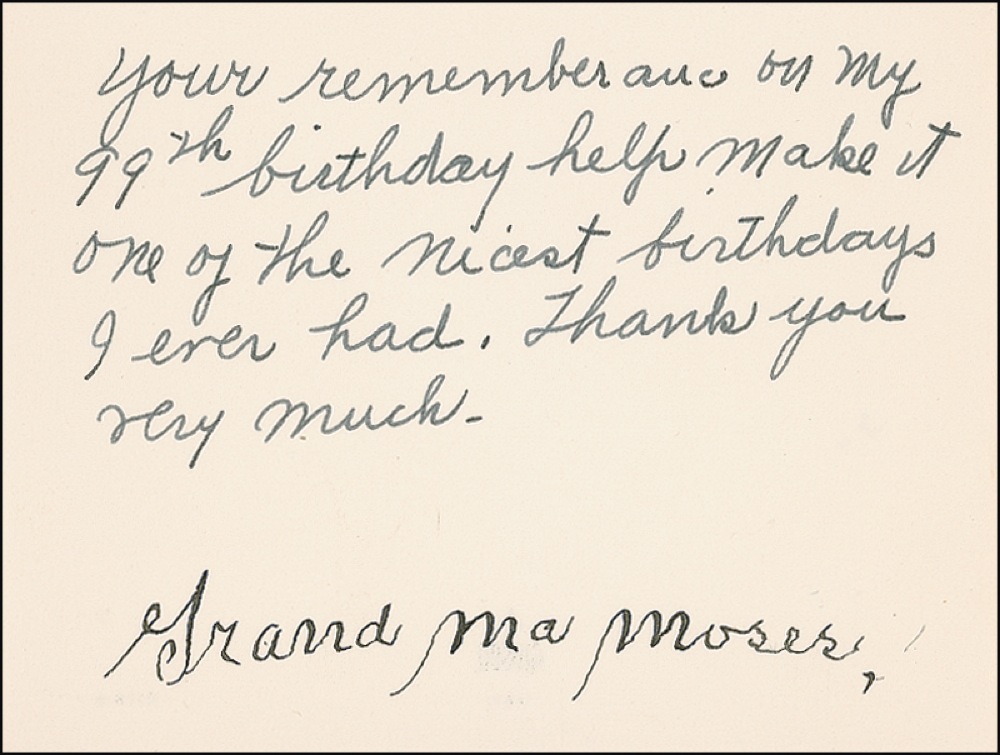 Your remembrance on my
99th birthday help make it
one of the nicest birthdays
I ever had. Thank you
very much-
Grand ma Moses,